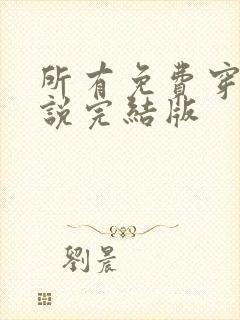 所有免費穿
說完結版
劉晨